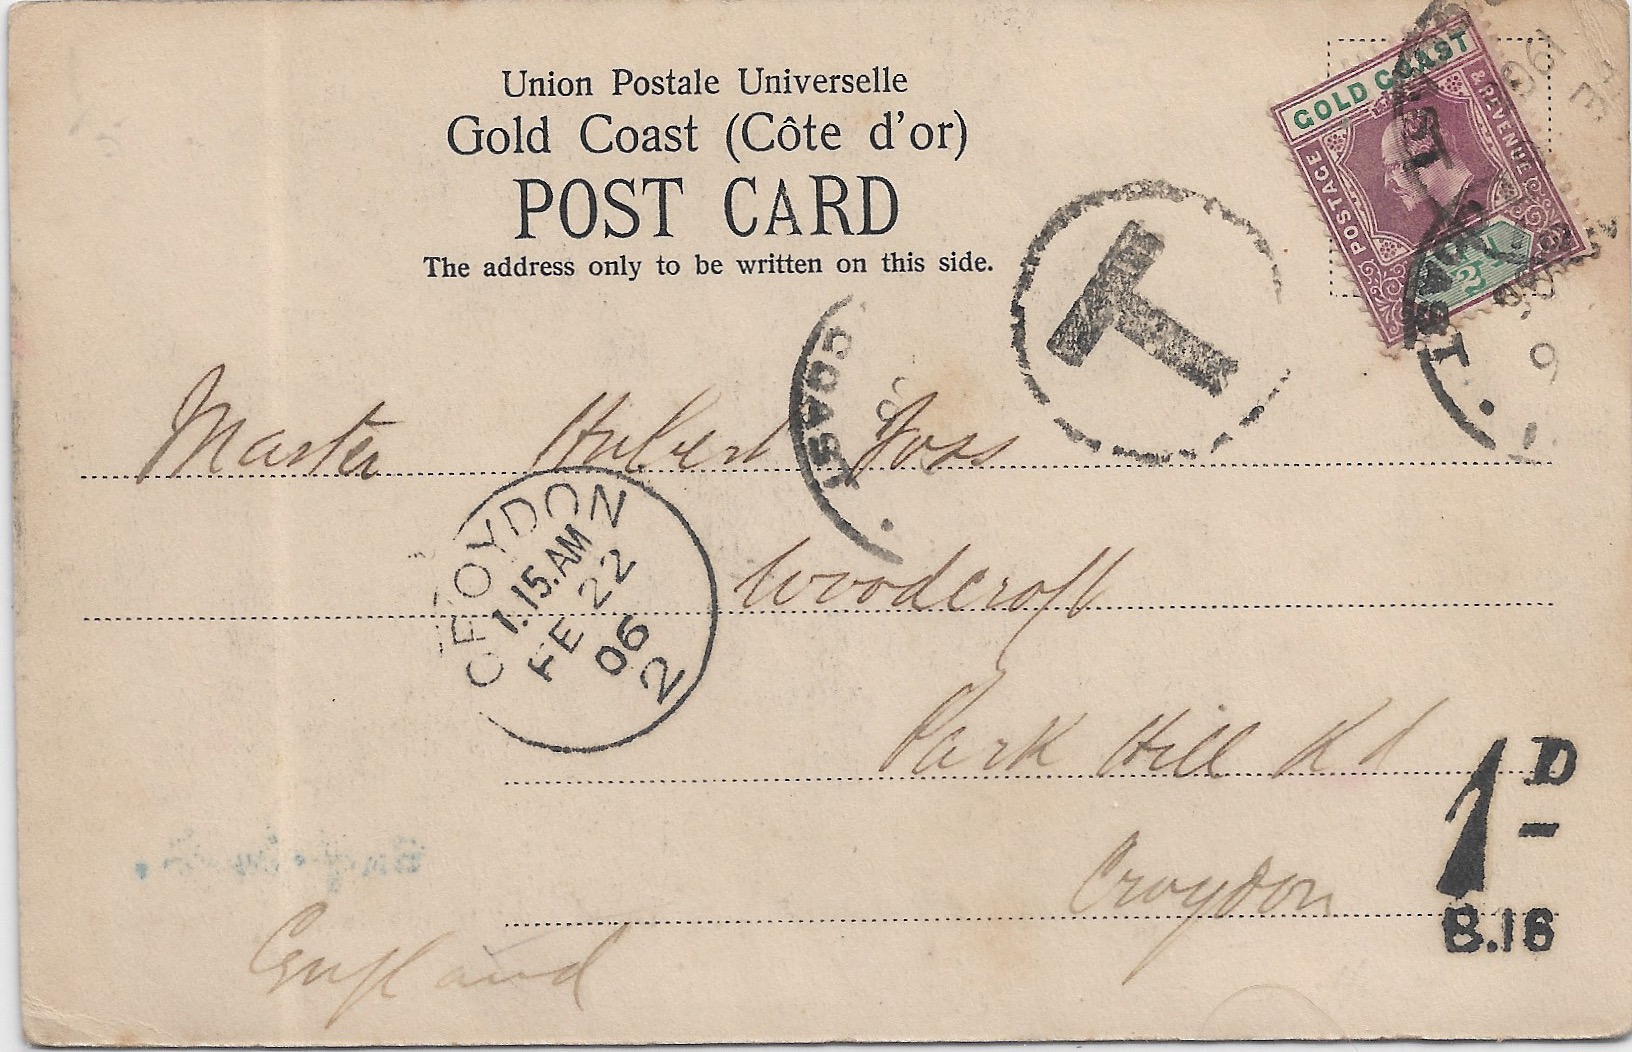 Union Postale Universelle
Gold Coast (Côte d'or)
POST CARD
The address only to be written on this side.
GOLD COAST
POSTAGE & REVENUE
½d
T
COAST
Master Hubert Joss
Woodcroft
Park Hill Rd
Croydon
England
CROYDON
1.15.AM
FE 22
06
2
1D
B.16